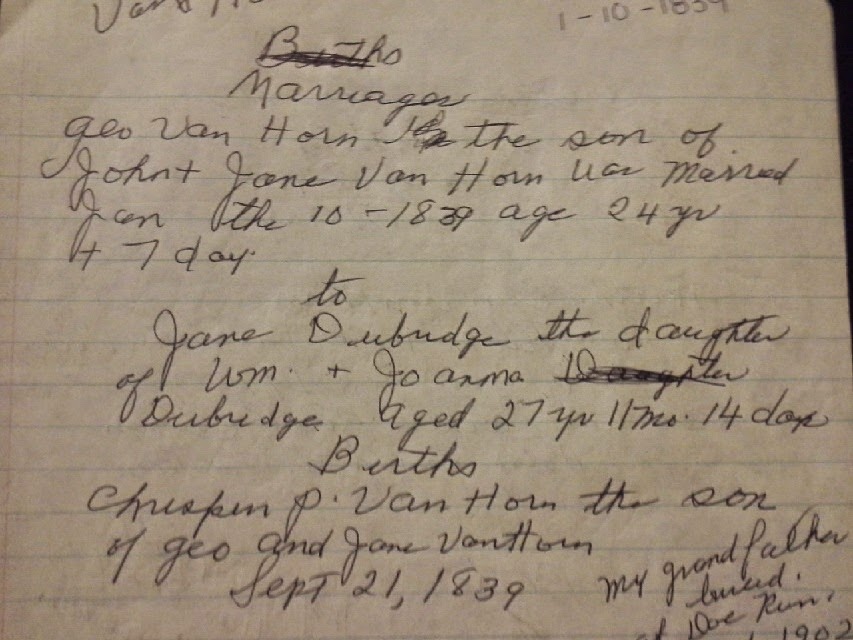 1-10-1839
Births
Marriages
Geo Van Horn the son of
John + Jane Van Horn was Married
Jan the 10 - 1839 age 24 yr
+ 7 day.
to
Jane Dubridge the daughter
of Wm. + Joanna Daughter
Dubridge Aged 27 yr 11 mo. 14 days
Births
Chrispin P. Van Horn the son
of Geo and Jane Van Horn
Sept 21, 1839
My grandfather
buried.
at Doe Run.
1902